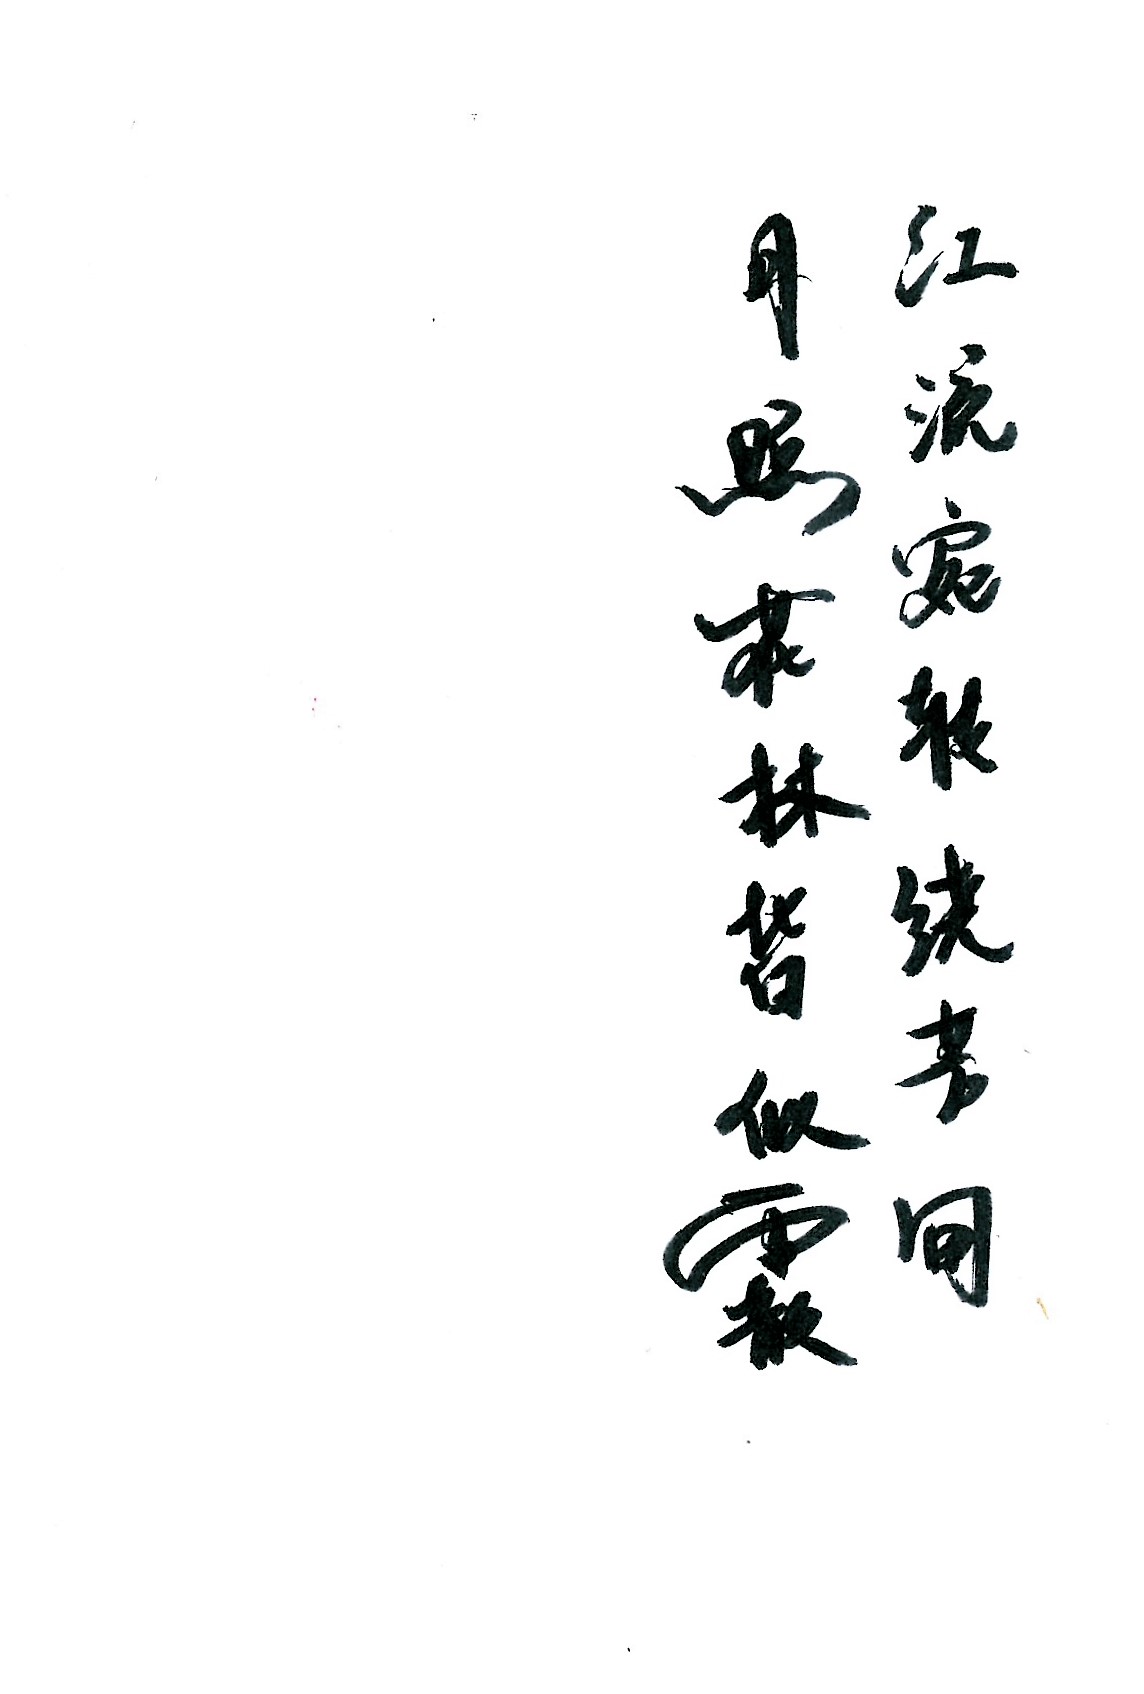 江流宛转绕芳甸
月照花林皆似霰